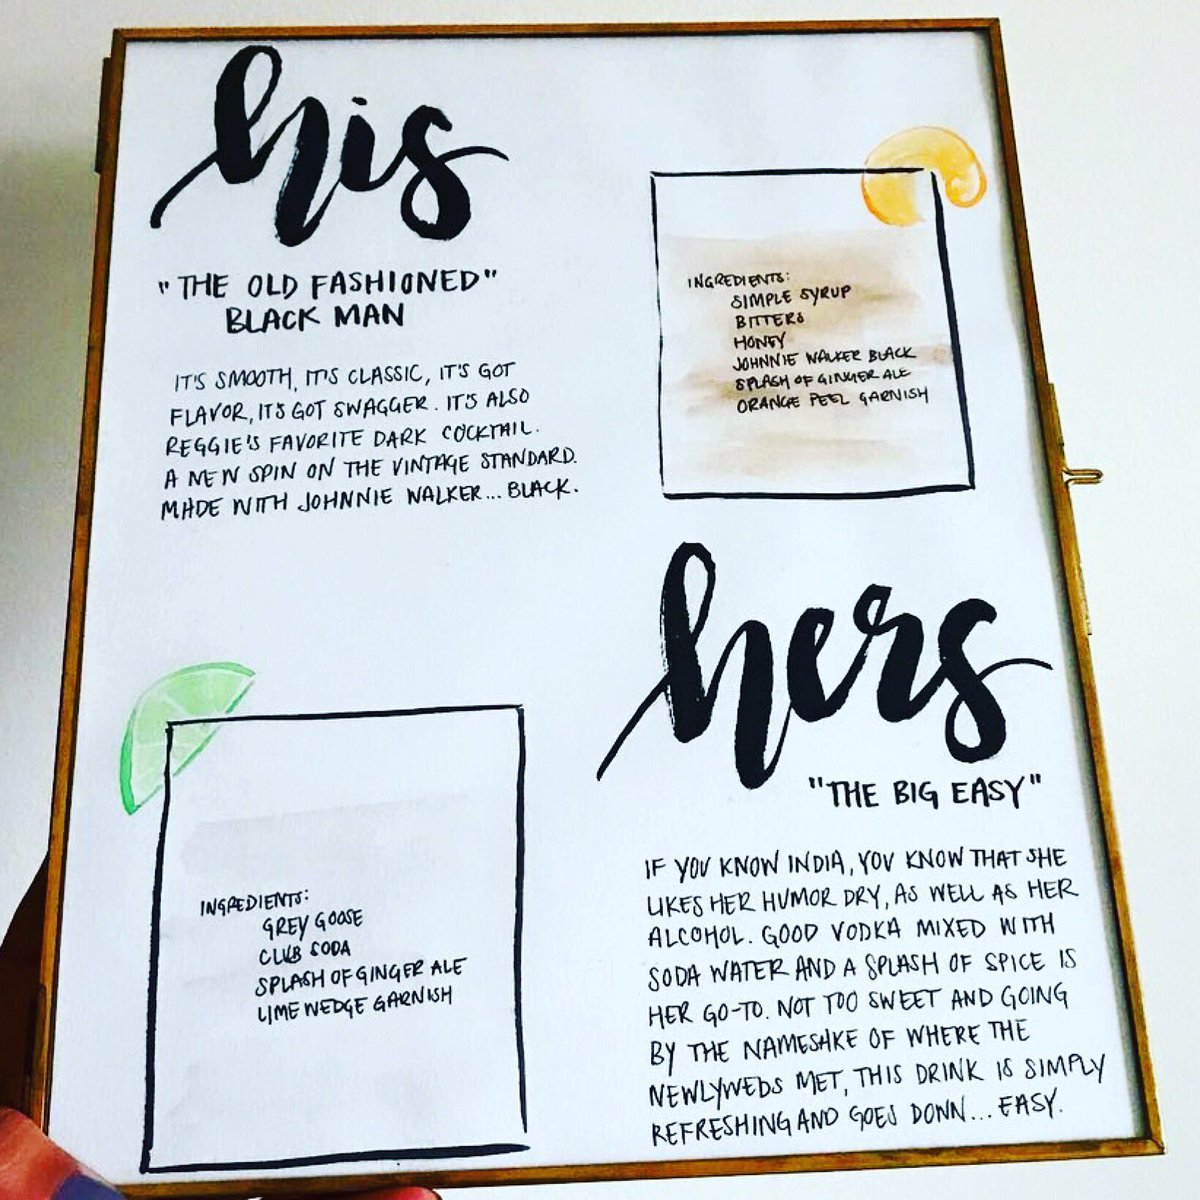 his
"THE OLD FASHIONED"
BLACK MAN
IT'S SMOOTH, IT'S CLASSIC, IT'S GOT
FLAVOR, IT'S GOT SWAGGER. IT'S ALSO
REGGIE'S FAVORITE DARK COCKTAIL.
A NEW SPIN ON THE VINTAGE STANDARD.
MADE WITH JOHNNIE WALKER... BLACK.
INGREDIENTS:
SIMPLE SYRUP
BITTERS
HONEY
JOHNNIE WALKER BLACK
SPLASH OF GINGER ALE
ORANGE PEEL GARNISH
hers
"THE BIG EASY"
IF YOU KNOW INDIA, YOU KNOW THAT SHE
LIKES HER HUMOR DRY, AS WELL AS HER
ALCOHOL. GOOD VODKA MIXED WITH
SODA WATER AND A SPLASH OF SPICE IS
HER GO-TO. NOT TOO SWEET AND GOING
BY THE NAMESAKE OF WHERE THE
NEWLYWEDS MET, THIS DRINK IS SIMPLY
REFRESHING AND GOES DOWN... EASY.
INGREDIENTS:
GREY GOOSE
CLUB SODA
SPLASH OF GINGER ALE
LIME WEDGE GARNISH